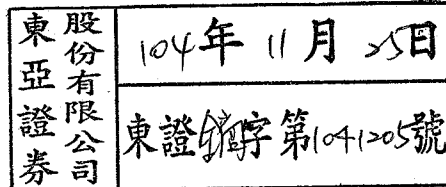 東亞證券
股份有限公司
104年11月25日
東證鎦字第1041205號